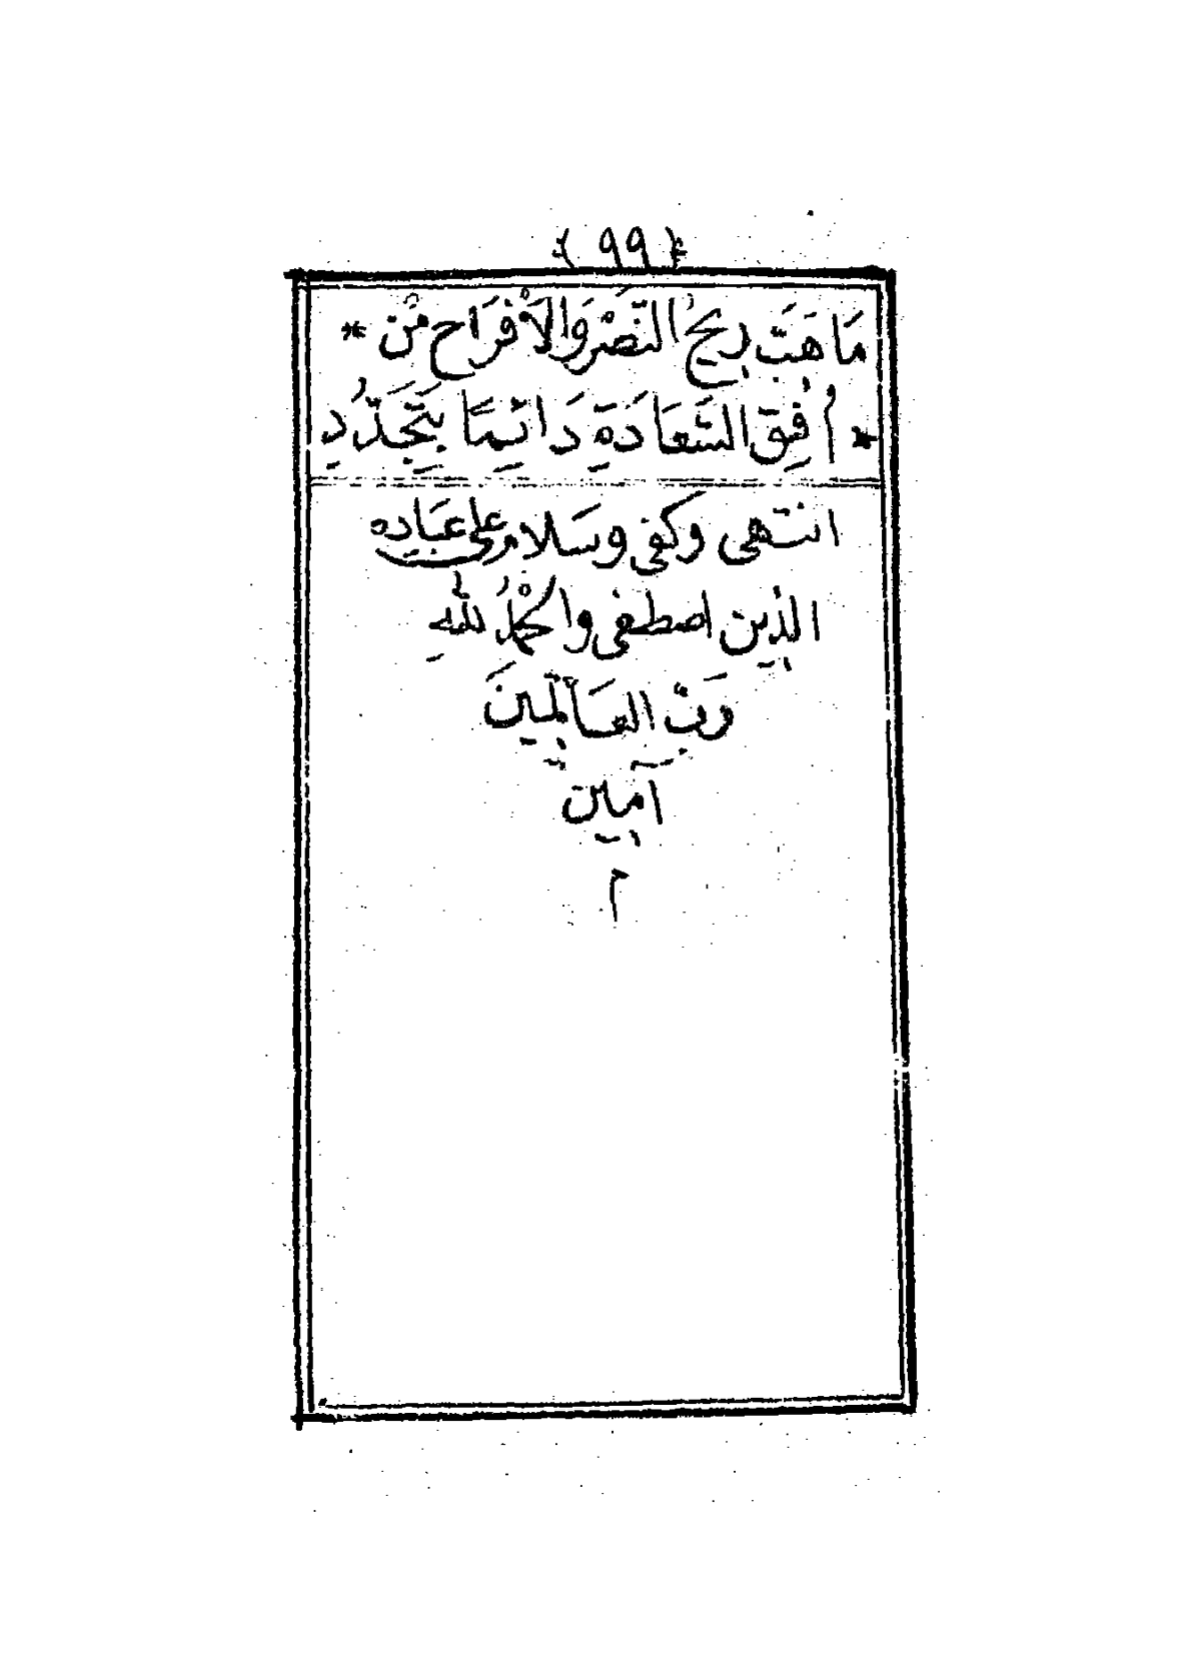 ﴿ ٩٩ ﴾
مَا هَبَّ رِيحُ النَّصْرِ وَالْأَفْرَاحِ مِنْ *
* أُفِقِ السَّعَادَةِ دَائِمًا بِتَجَدُّدِ
انتهى وكفى وسَلام على عِبَاده
الذِين اصطفى والحْمْدُ للهِ
رَبِّ العَالَمِينَ
آمِين
م